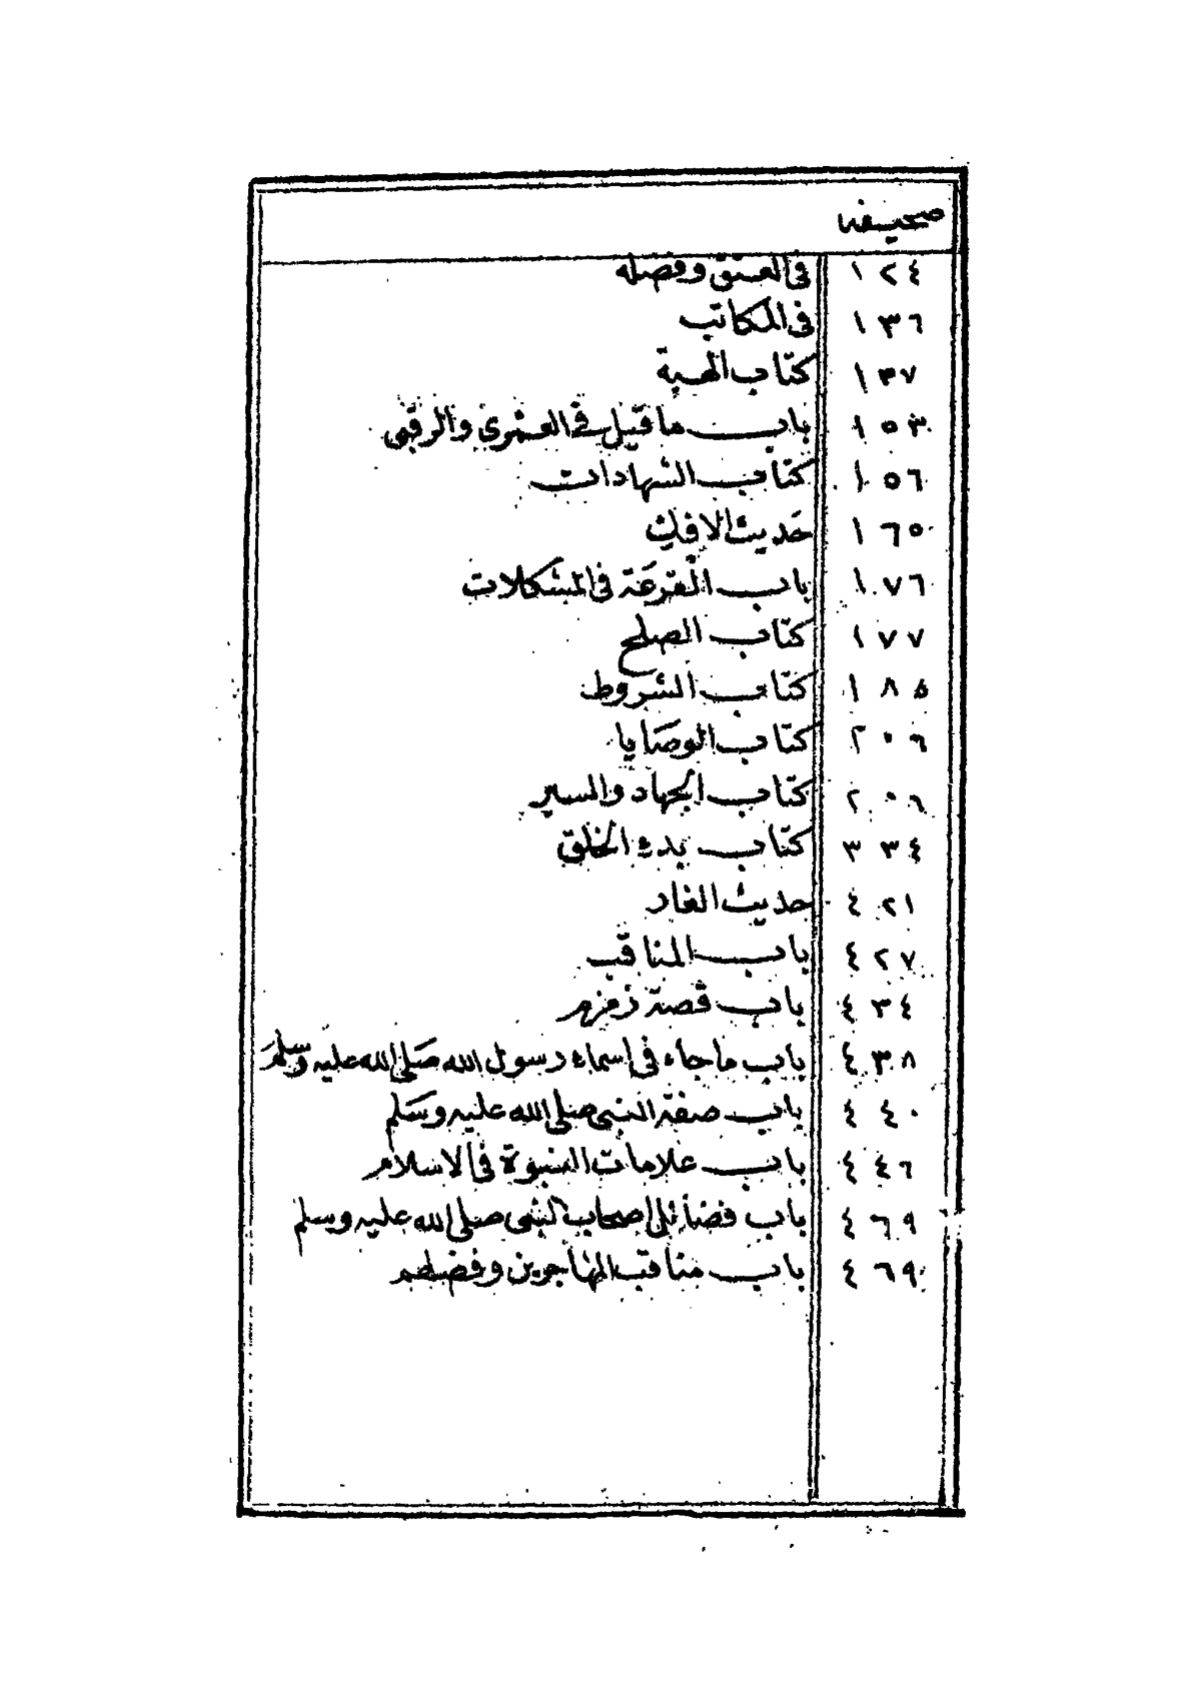 صحيفة
١٢٤ في العتق وفضله
١٣٦ في المكاتب
١٣٧ كتاب الهبة
١٥٣ باب ما قيل في العمرى والرقبى
١٥٦ كتاب الشهادات
١٦٥ حديث الافك
١٧٦ باب القرعة في المشكلات
١٧٧ كتاب الصلح
١٨٥ كتاب الشروط
٢٠٦ كتاب الوصايا
٢٠٦ كتاب الجهاد والسير
٣٣٤ كتاب بدء الخلق
٤٢١ حديث الغار
٤٢٧ باب المناقب
٤٣٤ باب قصة زمزم
٤٣٨ باب ما جاء في اسماء رسول الله صَلى الله عليه وسلم
٤٤٠ باب صفة النبي صلى الله عليه وسَلم
٤٤٦ باب علامات النبوة في الاسلام
٤٦٩ باب فضائل اصحاب النبي صلى الله عليه وسلم
٤٦٩ باب مناقب المهاجرين وفضلهم